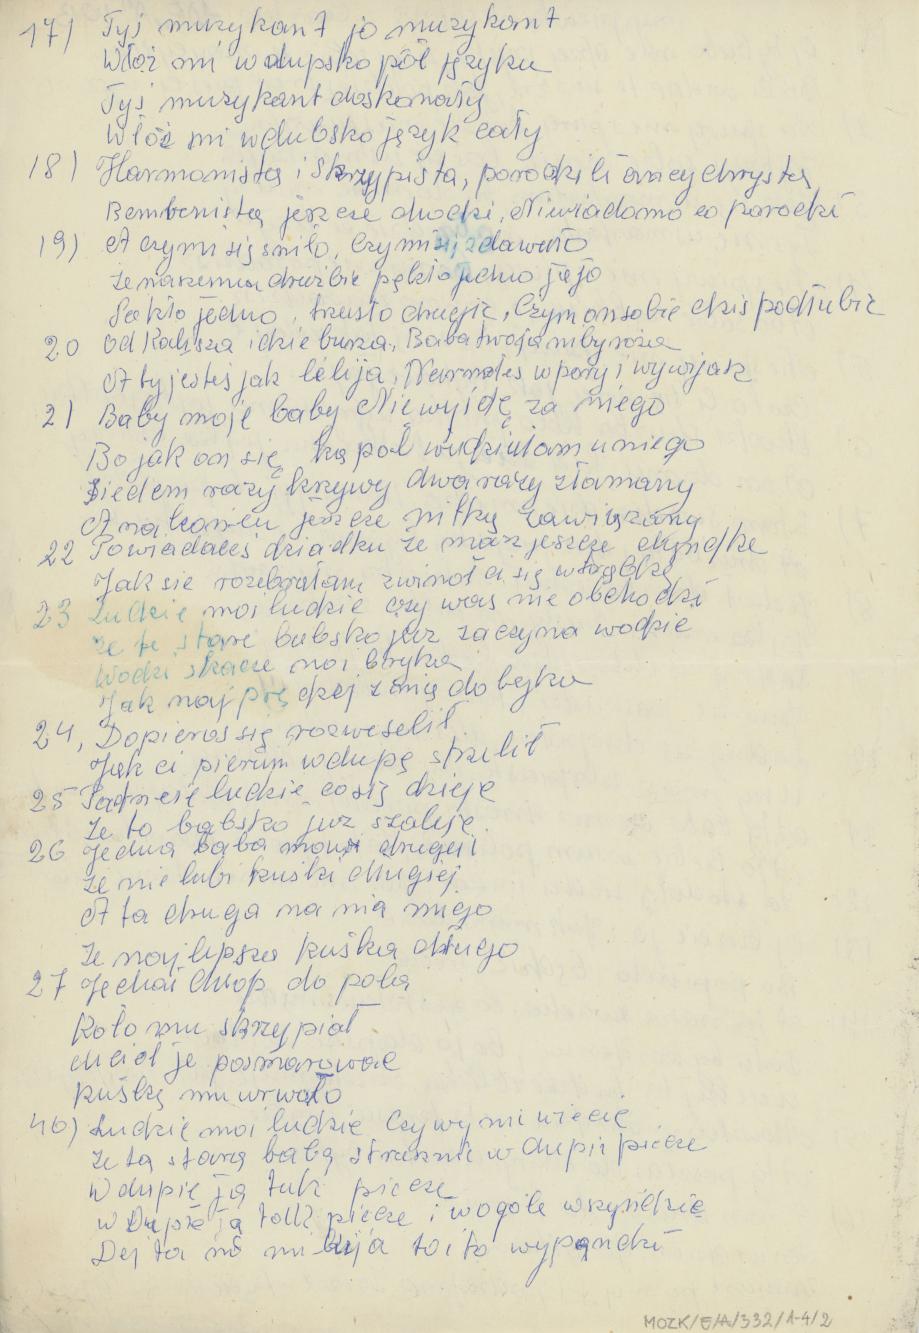 17) Tyś muzykant jo muzykant
Włóż mi w dupsko pół języku
Tyś muzykant doskonały
Włóż mi w dubsko język cały
18) Harmonistą i Skrzypista, porodzili
Bembenistą jeszcze chodzi, Niewiadomo co porodzi
19) A czymi się sniło, Czymi się zdawało
że naszemu drużbie pękło jedno jajo
Pękło jedno, trzasło drugie, Czym on sobie dziś podłubie
20 Od Kalisza idzie burza, Baba twoja niby róża
A ty jesteś jak lelija, w pory i wywijak
21 Baby moje baby Nie wyjdę za niego
Bo jak on się kąpoł widziałam u niego
Siedem razy krzywy dwa razy złamany
A na końcu jeszcze nitką zawiązany
22 Powiadałeś dziadku że mosz jeszcze
Jak sie rozebrałam zwinoł ci się w trąbkę
23 Ludzie moi ludzie czy was nie obchodzi
że te stare babsko już zaczyna wodzić
Wodzi skacze noi bryka
Jak naj prędzej z nią do byka
24, Dopieroś się rozweselił
Jak ci pierun w dupę strzelił
25 Patrzcie ludzie co się dzieje
Że to babsko już szaleje
26 Jedna baba mowi drugiej
że nie lubi kuśki długiej
A ta druga na nia mugo
że najlepsza kuśka długo
27 Jechał Chłop do pola
Koło mu skrzypiał
chcioł je posmarować
kuśkę mu urwało
46) Ludzie moi ludzie Czy wy mi wiecie
że tą starą babą strasznie w dupie piecze
W dupie ją tak piecze
w Dupie ją tak piecze i wogóle wszyńdzie
Dej ta no mi kija to i to wypandzi
MOZK/E/A/332/1-4/2